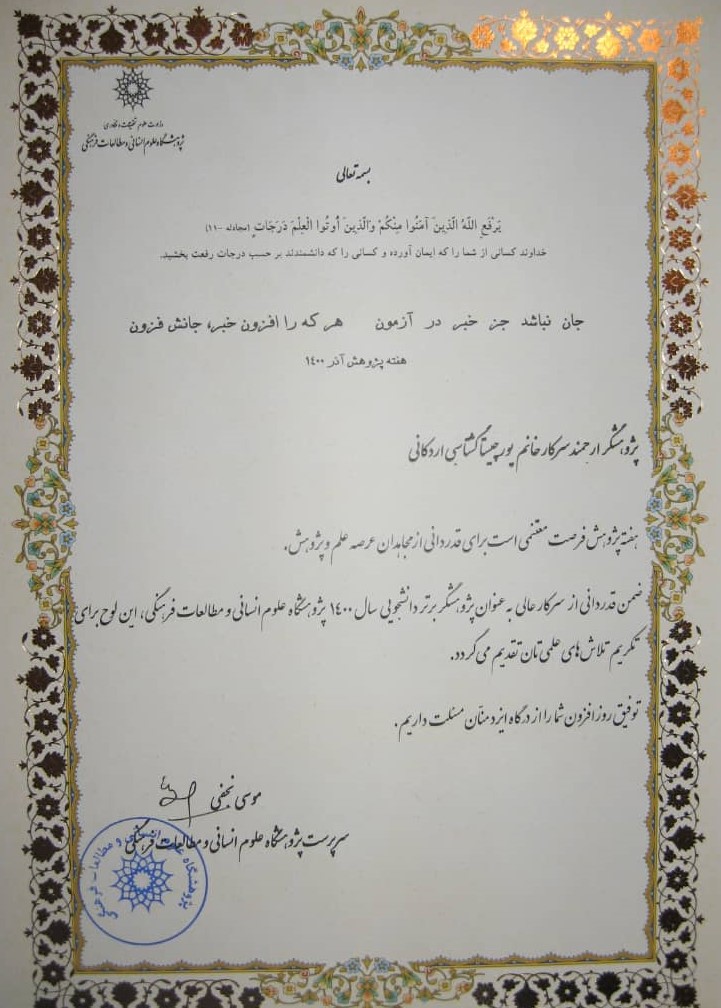 وزارت علوم تحقیقات و فناوری
پژوهشگاه علوم انسانی و مطالعات فرهنگی
بسمه تعالی
يَرْفَعِ اللَّهُ الَّذِينَ آمَنُوا مِنْكُمْ وَالَّذِينَ أُوتُوا الْعِلْمَ دَرَجَاتٍ (مجادله ۱۱۰۰)
خداوند کسانی از شما را که ایمان آورده و کسانی را که دانشمندند بر حسب درجات رفعت بخشید.
جان نباشد جز خبر در آزمون هر که را افزون خبر، جانش فزون
هفته پژوهش آذر ۱۴۰۰
پژوهشگر ارجمند سرکار خانم پورچیستا گشتاسبی اردکانی
هفته پژوهش فرصت مغتنمی است برای قدردانی از مجاهدان عرصه علم و پژوهش.
ضمن قدردانی از سرکار عالی به عنوان پژوهشگر برتر دانشجویی سال ۱۴۰۰ پژوهشگاه علوم انسانی و مطالعات فرهنگی، این لوح برای
تکریم تلاش های علمی تان تقدیم می گردد.
توفیق روز افزون شما را از درگاه ایزد منّان مسئلت داریم.
موسی نجفی
سرپرست پژوهشگاه علوم انسانی و مطالعات فرهنگی
پژوهشگاه علوم انسانی و مطالعات فرهنگی